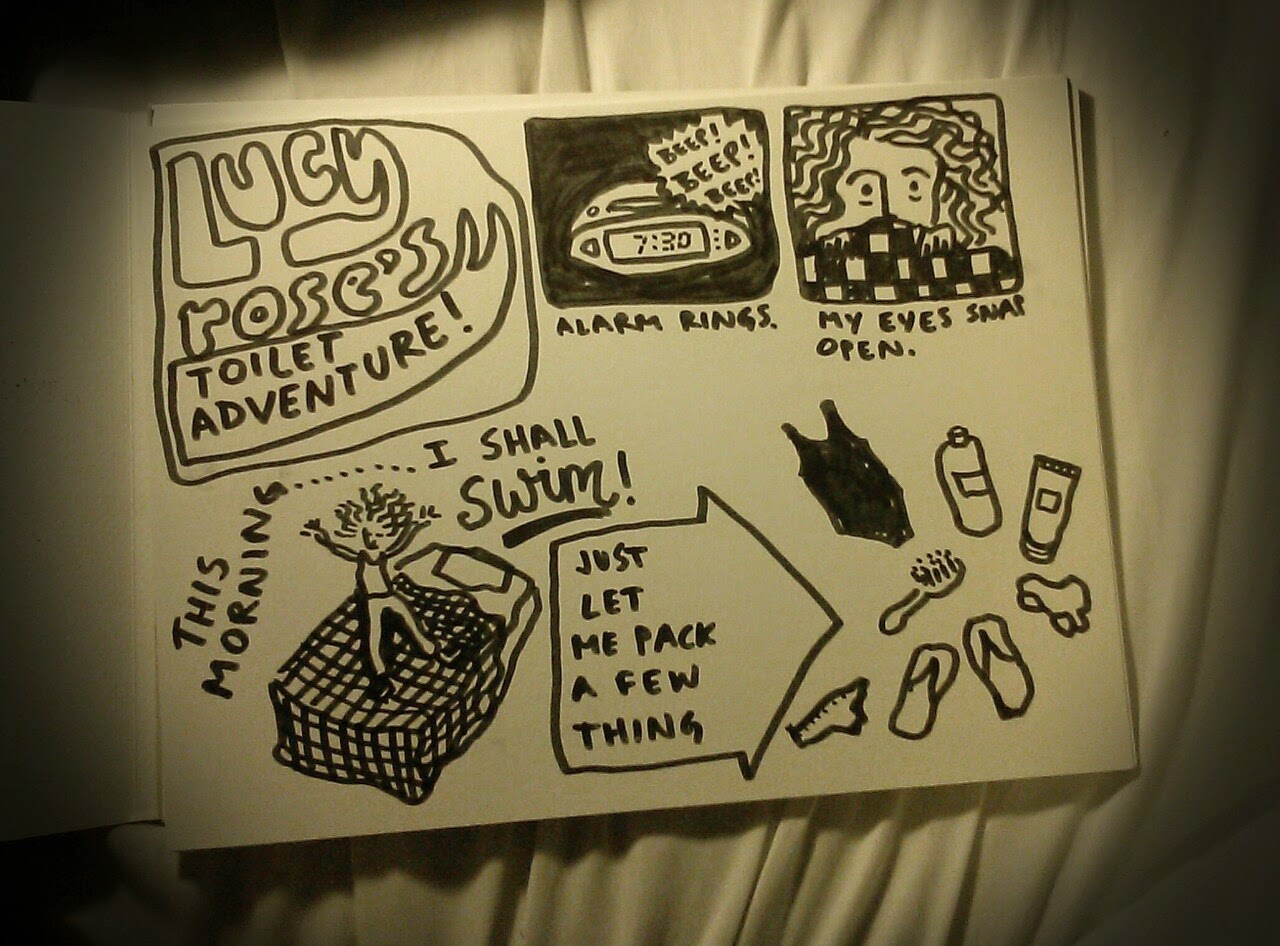 Lucy
rose's
TOILET
ADVENTURE!
BEEP!
BEEP!
BEEP!
7:30
ALARM RINGS.
MY EYES SNAP
OPEN.
THIS
MORNING........I SHALL
Swim!
JUST
LET
ME PACK
A FEW
THING